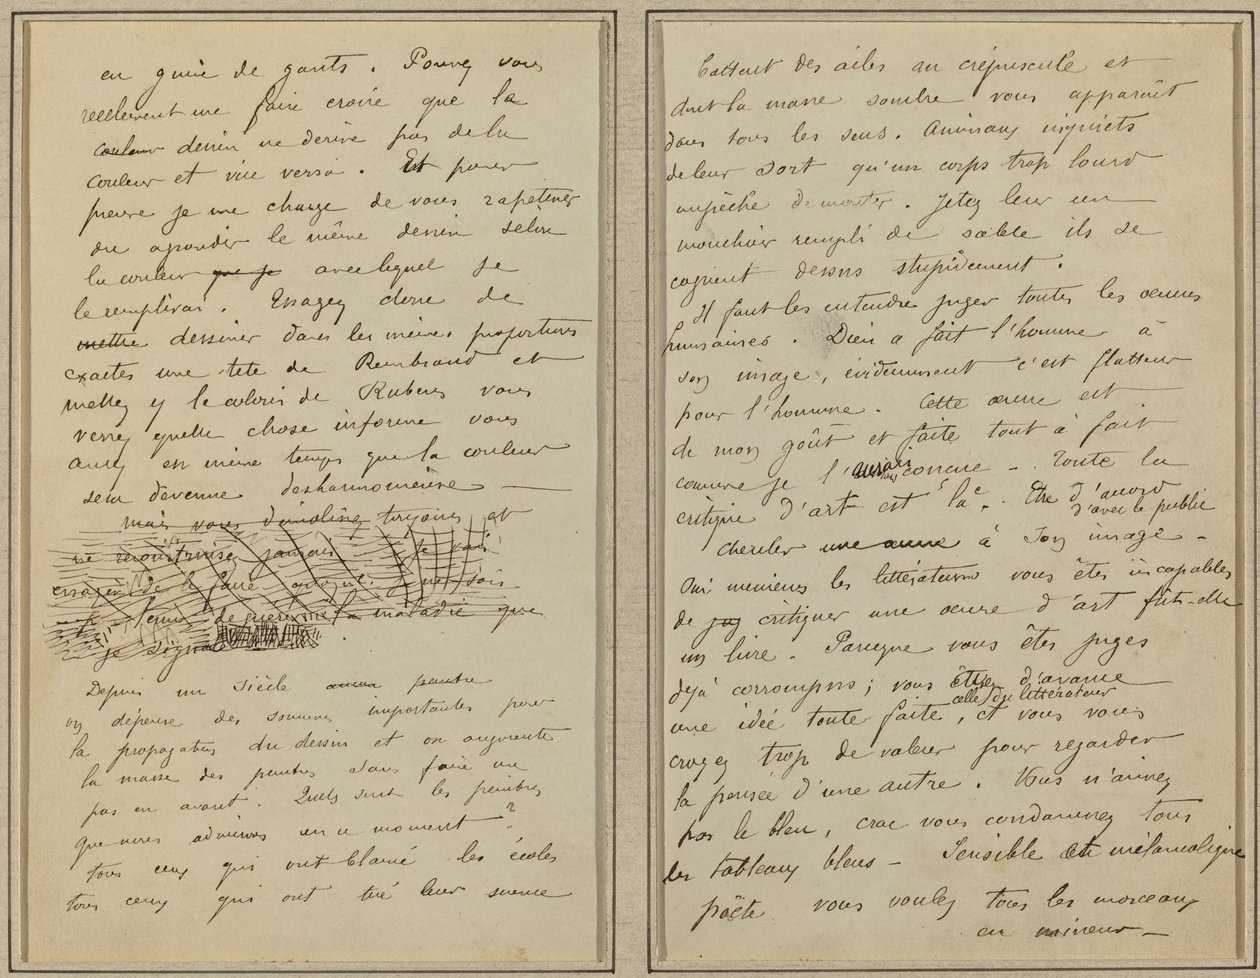 en guise de gants. Pouvez vous
réellement me faire croire que la
couleur dessin ne dérive pas de la
couleur et vice versa. Et pour
preuve je me charge de vous rapetisser
ou agrandir le même dessin selon
la couleur que je avec lequel je
le remplirai. Essayez donc de
mettre dessiner dans les mêmes proportions
exactes une tête de Rembrand et
mettez y le coloris de Rubens vous
verrez quelle chose informe vous
aurez en même temps que la couleur
sera devenue desharmonieuse —
mais vous démolissez toujours et
ne reconstruisez jamais Je vais
essayer de le faire aujourd'hui
de guérir la maladie que
je signale
Depuis un siècle aucun peintre
on dépense des sommes importantes pour
la propagation du dessin et on augmente
la masse des peintres sans faire un
pas en avant. Quels sont les peintres
que nous admirons en ce moment?
tous ceux qui ont blamé les écoles
tous ceux qui ont tiré leur science
battent des ailes au crépuscule et
dont la masse sombre vous apparaît
dans tous les sens. Animaux inquiets
de leur sort qu'un corps trop lourd
empêche de monter. Jetez leur un
mouchoir rempli de sable ils se
cognent dessus stupidement.
Il faut les entendre juger toutes les œuvres
humaines. Dieu a fait l'homme à
son image, évidemment c'est flatteur
pour l'homme. Cette œuvre est
de mon goût et faite tout à fait
comme je l'aurais conçue – Toute la
critique d'art est là. Etre d'accord
d'avec le public
chercher une œuvre à son image –
Oui messieurs les littérateurs vous êtes incapables
de jug critiquer une œuvre d'art fut-elle
un livre – Parceque vous êtes juges
déjà corrompus; vous avez d'avance
celle du littérateur
une idée toute faite, et vous vous
croyez trop de valeur pour regarder
la pensée d'une autre. Vous n'aimez
pas le bleu, crac vous condamnez tous
les tableaux bleus – Sensible et mélancolique
poète vous voulez tous les morceaux
en mineur –